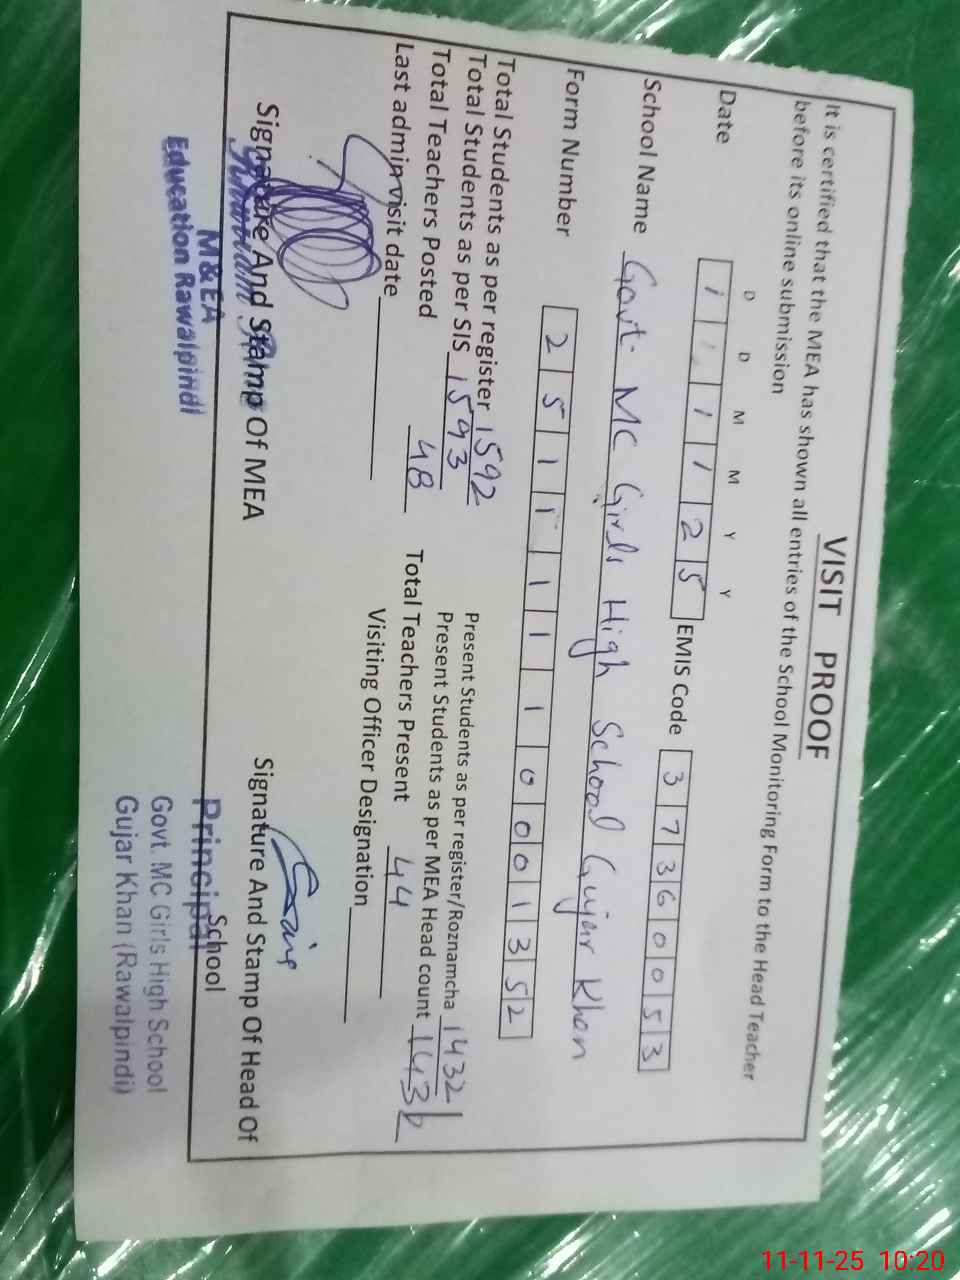 VISIT PROOF
It is certified that the MEA has shown all entries of the School Monitoring Form to the Head Teacher
before its online submission
D D M M Y Y
Date 1 1 1 1 2 5 EMIS Code 3 7 3 6 0 0 5 3
School Name Govt. MC Girls High School Gujar Khan
Form Number 2 5 1 1 1 1 1 0 0 0 1 3 5 2
Total Students as per register 1592 Present Students as per register/Roznamcha 1432
Total Students as per SIS 1593 Present Students as per MEA Head count 1432
Total Teachers Posted 48 Total Teachers Present 44
Last admin visit date Visiting Officer Designation
Signature And Stamp Of MEA Signature And Stamp Of Head Of
School
M&EA
Education Rawalpindi
Principal
Govt. MC Girls High School
Gujar Khan (Rawalpindi)
11-11-25 10:20